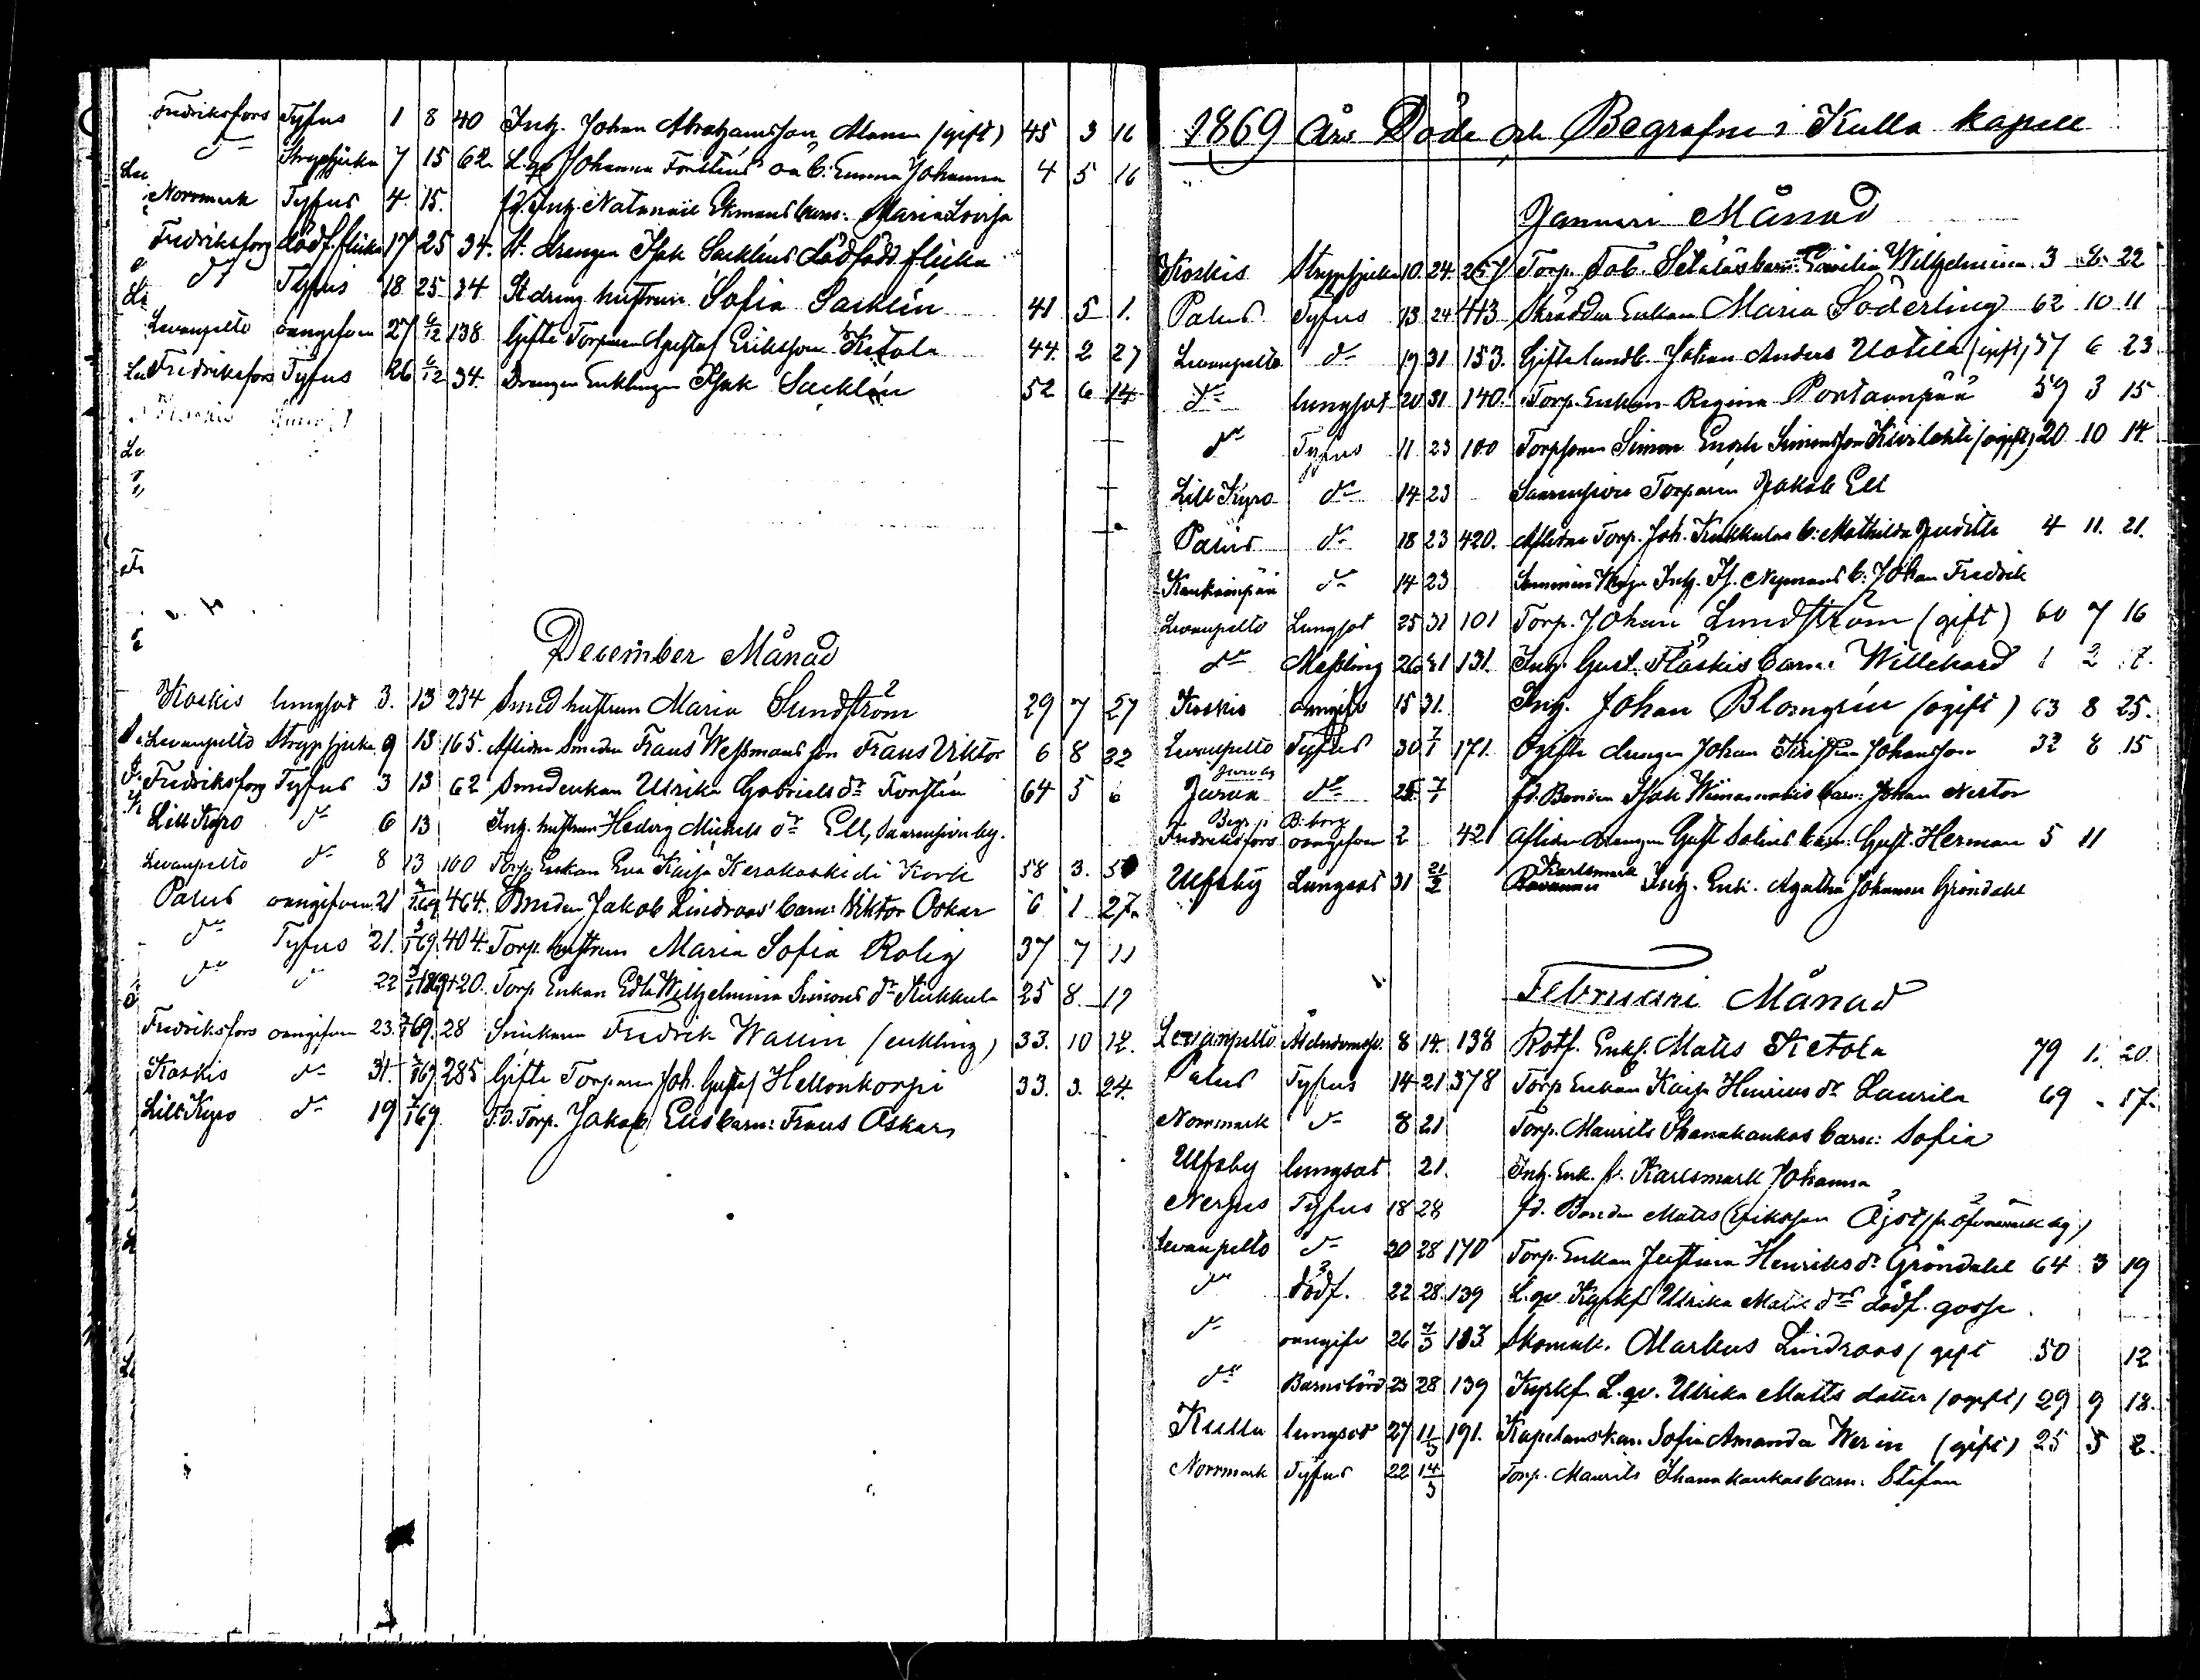 Fredriksfors Tyfus 1 8 40 Inh. Johan Abrahamsson Alanen (gift) 45 3 16
dº Strypsjuka 7 15 62 L. qv. Johanna Forsténs oä b. Emma Johanna 4 5 16
Norrmark Tyfus 4 15. fd. Inh. Natanael Ekmans barn: Maria Lovisa
Fredriksforg dödf. flicka 17 25 34. St. drengen Isak Sacklins dödfödd flicka
dº Tyfus 18 25 34 St drengs hustrun Sofia Sacklén 41 5 1.
Levanpelto oangifven 27 6/12 138 Gifte Torparen Gustaf Eriksson Ketola 44. 2 27
Fredriksfors Tyfus 26 6/12 34. Drengen Enklingen Isak Sacklén 52 6 14
December Månad
Koskis lungsot 3. 13 234 Smed hustrun Maria Sundström 29 7 27
Levanpelto Strypsjuka 9 13 165. Aflidne Smeden Frans Wessmans son Frans Viktor 6 8 22
Fredriksforg Tyfus 3 13 62 Smedenkan Ulrika Gabrielsdr Forstén 64 5 6
Lill Kyro dº 6 13 Inh. hustrun Hedvig Mickels dr Ell, Saarensivu by.
Levanpelto dº 8 13 100 Torp. Enkan Eva Kaisa Kerakoskidi Kork 58 3. 5
Palus oangifven 21 464. Smeden Jakob Lindroos' barn: Viktor Oskar 6 1 27.
dº Tyfus 21. 3/1 69. 404. Torp. hustrun Maria Sofia Rolig 37 7 11
dº dº 22 3/1 1869 420. Torp Enkan Edla Wilhelmina Simons dr Kukkula 25 8. 17
Fredriksfors oangifven 23. 69. 28 Snickaren Fredrik Wallin (enkling) 33. 10 12.
Koskis dº 31. 69 285 Gifte Torparen Joh. Gustaf Hellonkorpi 33. 3. 24.
Lill Kyro dº 19 69. F.d. Torp. Jakob Ells barn: Frans Oskar
1869 Års Döde och Begrafne i Kulla kapell
Januari Månad
Koskis Strypsjuka 10. 24. 257 Torp. Tob. Setäläs barn: Emilia Wilhelmina. 3 8. 22
Palus Tyfus 13 24 413 Skräddar Enkan Maria Söderling 62 10 11
Levanpelto dº 19 31 153. Gifte landb. Johan Anders Uotila (gift) 37 6 23
dº lungsot 20 31 140. Torp. Enkan Regina Portaanpää 59 3 15
dº Tyfus 11 23 100 Torpsonen Simon Enok Simonsson Kivilahti (ogift) 20 10 14
Lill Kyro dº 14 23 Saarensivu Torparen Jakob Ell
Palus dº 18 23 420. Aflidne Torp. Joh. Kukkulas b: Mathilda Juditha 4 11. 21.
Kankaanpää dº 14 23 Inh. Is. Nymans b: Johan Fredrik
Levanpelto Lungsot 25 31 101 Torp. Johan Lundström (gift) 60 7 16
dº Messling 26 31 131. Inh. Gust. Flåskis barn: Willehard 1 2 7.
Koskis oangifv 15 31. Inh. Johan Blomgrén (ogift) 63 8 25.
Levanpelto Tyfus 30 7/1 171. Ogifte drengen Johan Kristian Johansson 32 8 15
Juroby
Jurva dº 25 7/1 fd. Bonden Isak Wiinamäkis barn: Johan Nestor
Begr. i B:borg
Fredriksfors oangifven 2 42 Aflidne drengen Gust Salins barn: Gust. Herman 5 11
Karlsmark
Ulfsby Lungsot 31 21/2 Inh. Enk. Agatha Johanna Gröndahl
Februari Månad
Levanpelto Ålderdomssv. 8 14. 138 Rotf. Enkl. Mats Ketola 79 1. 20.
Palus Tyfus 14 21 378 Torp Enkan Kaisa Henriks dr Laurila 69 - 17.
Norrmark dº 8 21 Torp. Maurits Ihanakankas barn: Sofia
Ulfsby lungsot 21. Inh. Enk. fr. Karlsmark Johanna
Nerpes Tyfus 18 28 fd. Bonden Mats Eriksson Öjst (fr Öfvermark by)
Levanpelto dº 20 28 170 Torp. Enkan Justina Henriksdr Gröndahl 64 3 19
dº dödf. 22 28 139 L. qv Kyrkf Ulrika Mats drs dödf. gosse
dº oangifv 26 7/3 183 Skomak. Markus Lindroos (gift 50 12
dº Barnsbörd 23 28 139 Kyrkf L. qv. Ulrika Matts dotter (ogift) 29 9 18.
Kulla lungsot 27 11/3 191. Kapelanskan Sofia Amanda Werin (gift) 25 5 2.
Norrmark Tyfus 22 14/3 Torp. Maurits Ihanakankas barn: Stefan